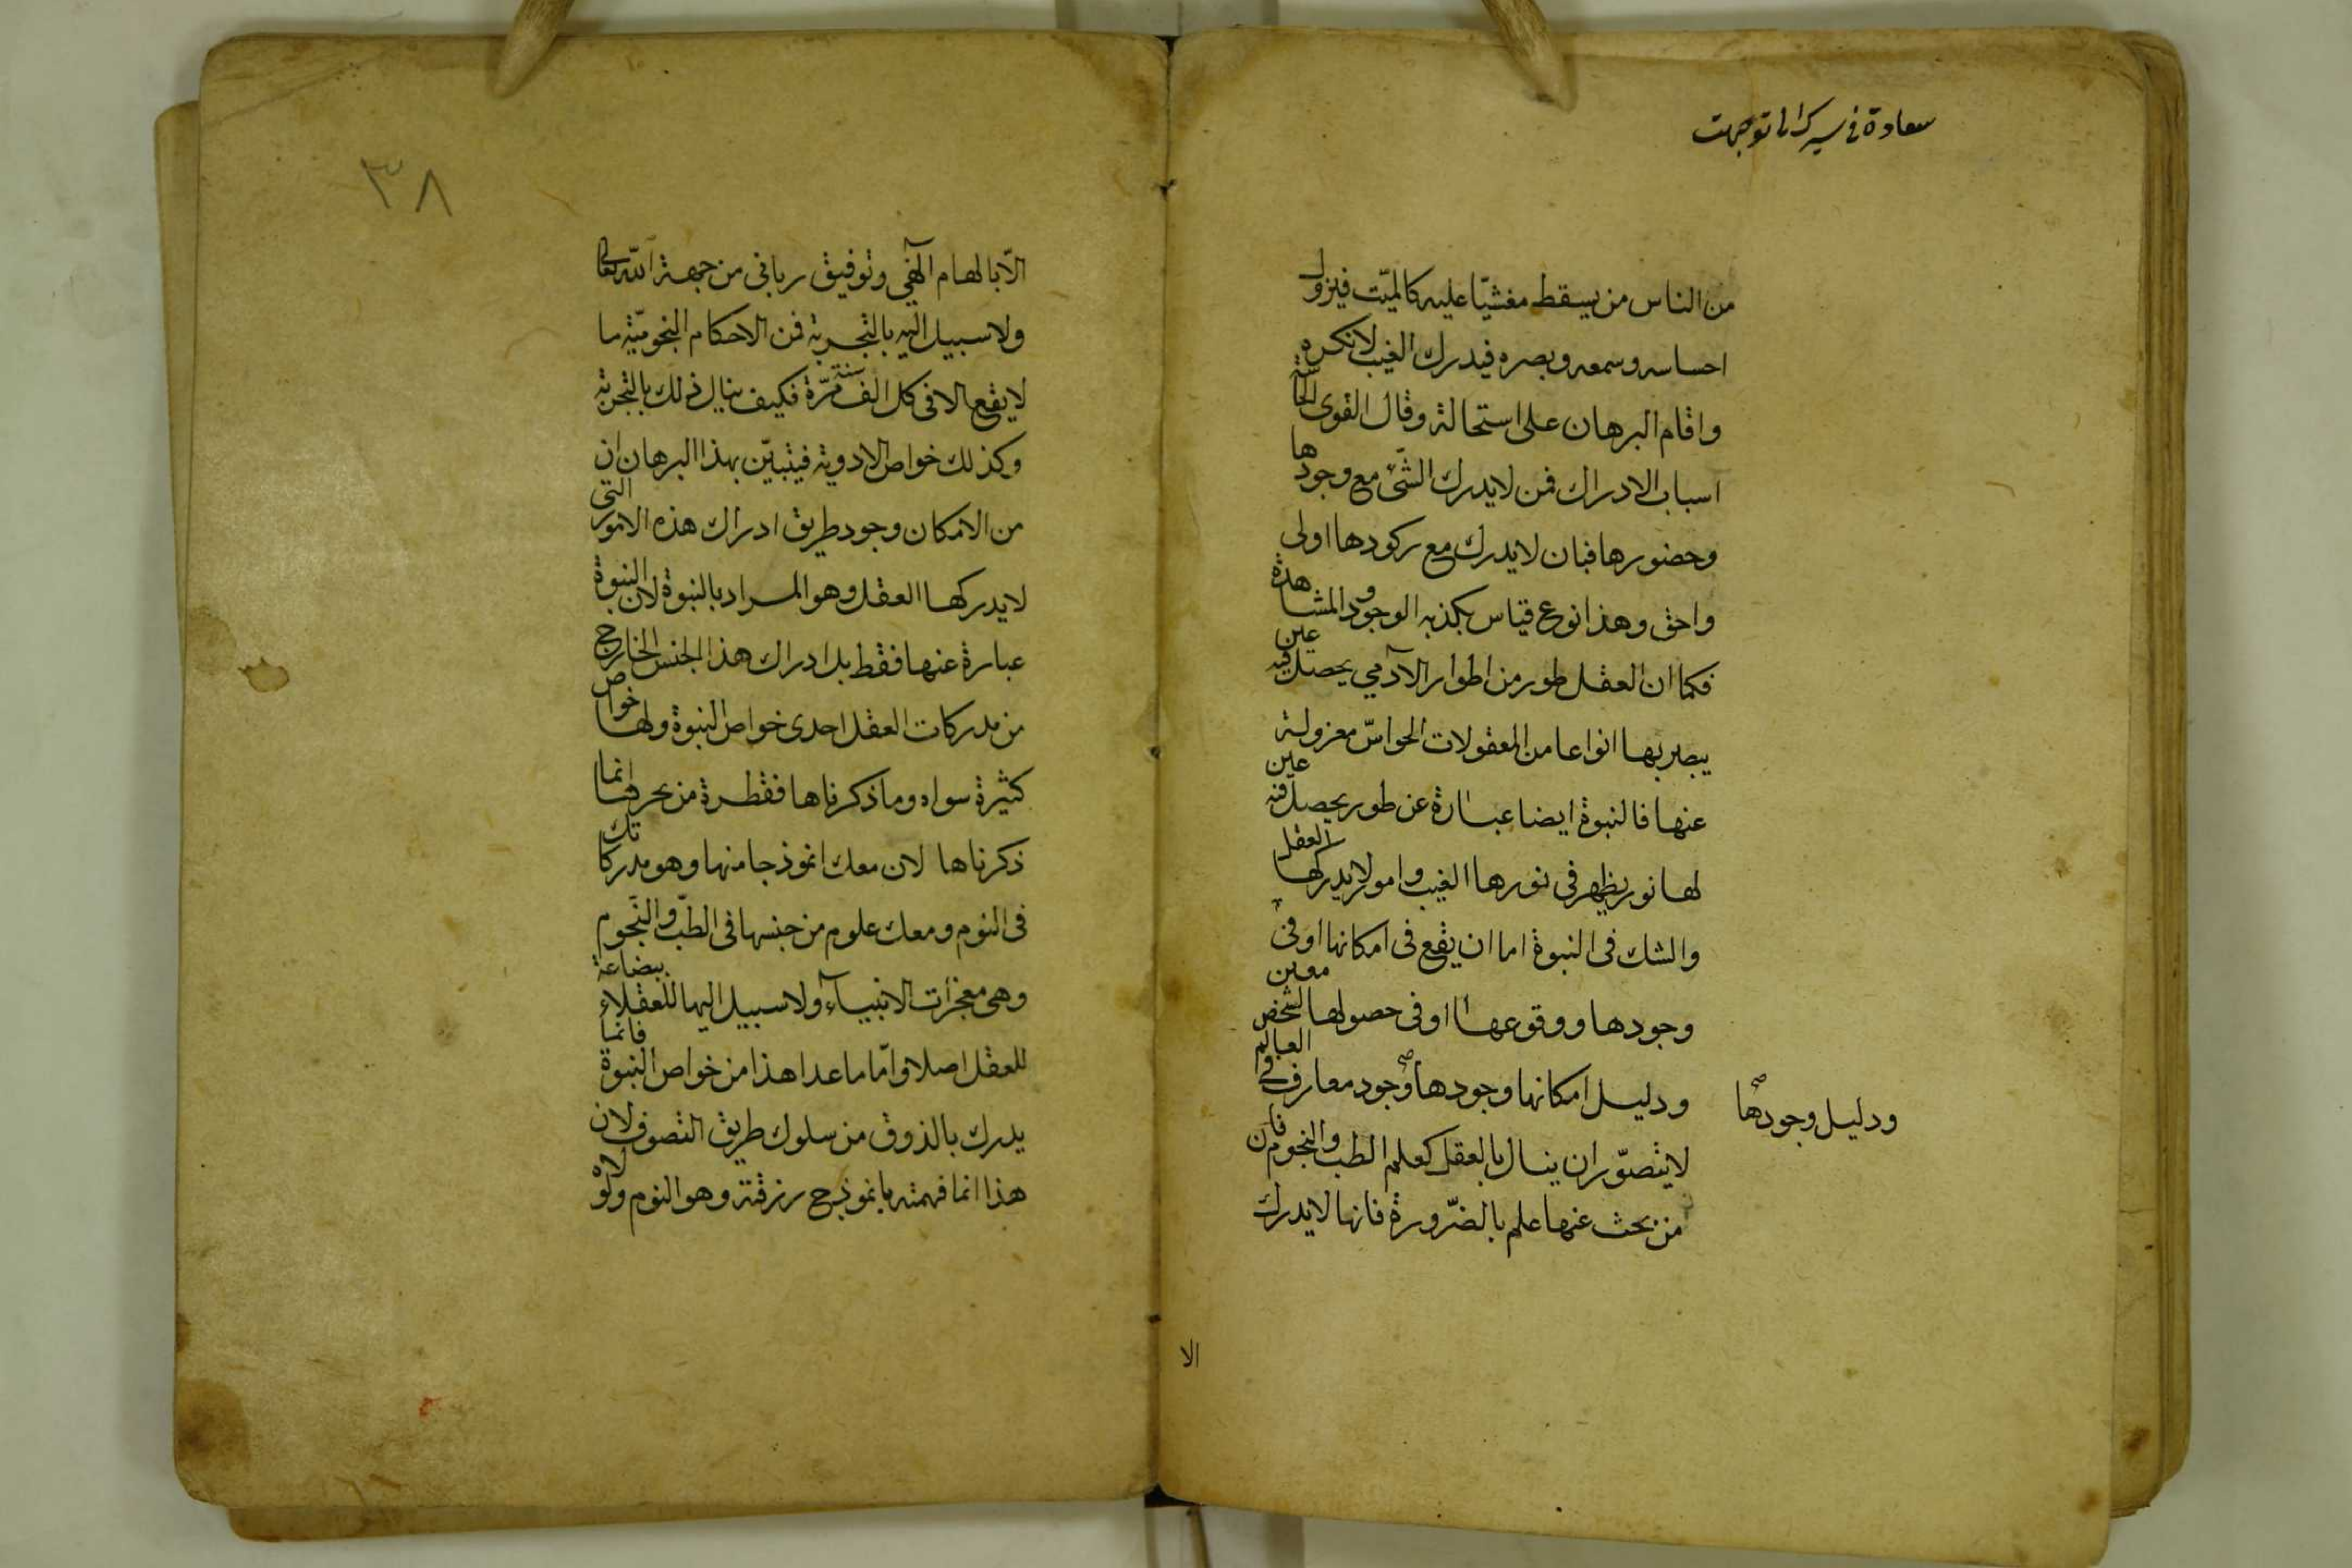 سعادة في سيرك اناتوجهت
من الناس من يسقط مغشيّا عليه كالميّت فيزول
احساسه وسمعه وبصره فيدرك الغيب لانكره
واقام البرهان على استحالة وقال القوى الحاسّة
اسباب الادراك فمن لايدرك الشّئ مع وجودها
وحضورها فبان لايدرك مع ركودها اولى
واحق وهذا نوع قياس يكذبه الوجود والمشاهدة
فكما ان العقل طور من اطوار الآدمي يحصل فيه عين
يبصر بها انواعا من المعقولات الحواسّ معزولة
عنها فالنبوة ايضا عبارة عن طور يحصل فيه عين
لها نور يظهر في نورها الغيب وامور لايدركها العقل
والشك فى النبوة اما ان يقع فى امكانها اوفى
وجودها ووقوعها اوفى حصولها لشخص معين
ودليل امكانها وجودها وجود معارف في العالم
ودليل وجودها صح
لايتصوّر ان ينال بالعقل كعلم الطب والنجوم فان
من بحث عنها علم بالضّرورة فانها لايدرك
الا
٣٨
الّا بالهام الٓهي وتوفيق ربانى من جهة الله تعالى
ولاسبيل اليه بالتجربة فمن الاحكام النجوميّة ما
لايقع الافى كل الف سنة مرّة فكيف ينال ذلك بالتجربة
وكذلك خواص الادوية فيتبيّن بهذا البرهان ان
من الامكان وجود طريق ادراك هذه الامور التي
لايدركها العقل وهو المراد بالنبوة لان النبوة
عبارة عنها فقط بل ادراك هذا الجنس الخارج
من مدركات العقل احدى خواص النبوة ولها خواص
كثيرة سواه وما ذكرناها فقطرة من بحرها انما
ذكرناها لان معك انموذجا منها وهو مدركاتك
فى النوم ومعك علوم من جنسها فى الطبّ والنّجوم
وهى معجزات الانبياء ولاسبيل اليها للعقلاء ببضاعة
للعقل اصلا وامّا ماعدا هذا من خواص النبوة فانما
يدرك بالذوق من سلوك طريق التصوف لان
هذا انما فهمته بانموذج رزقته وهو النوم ولولاه